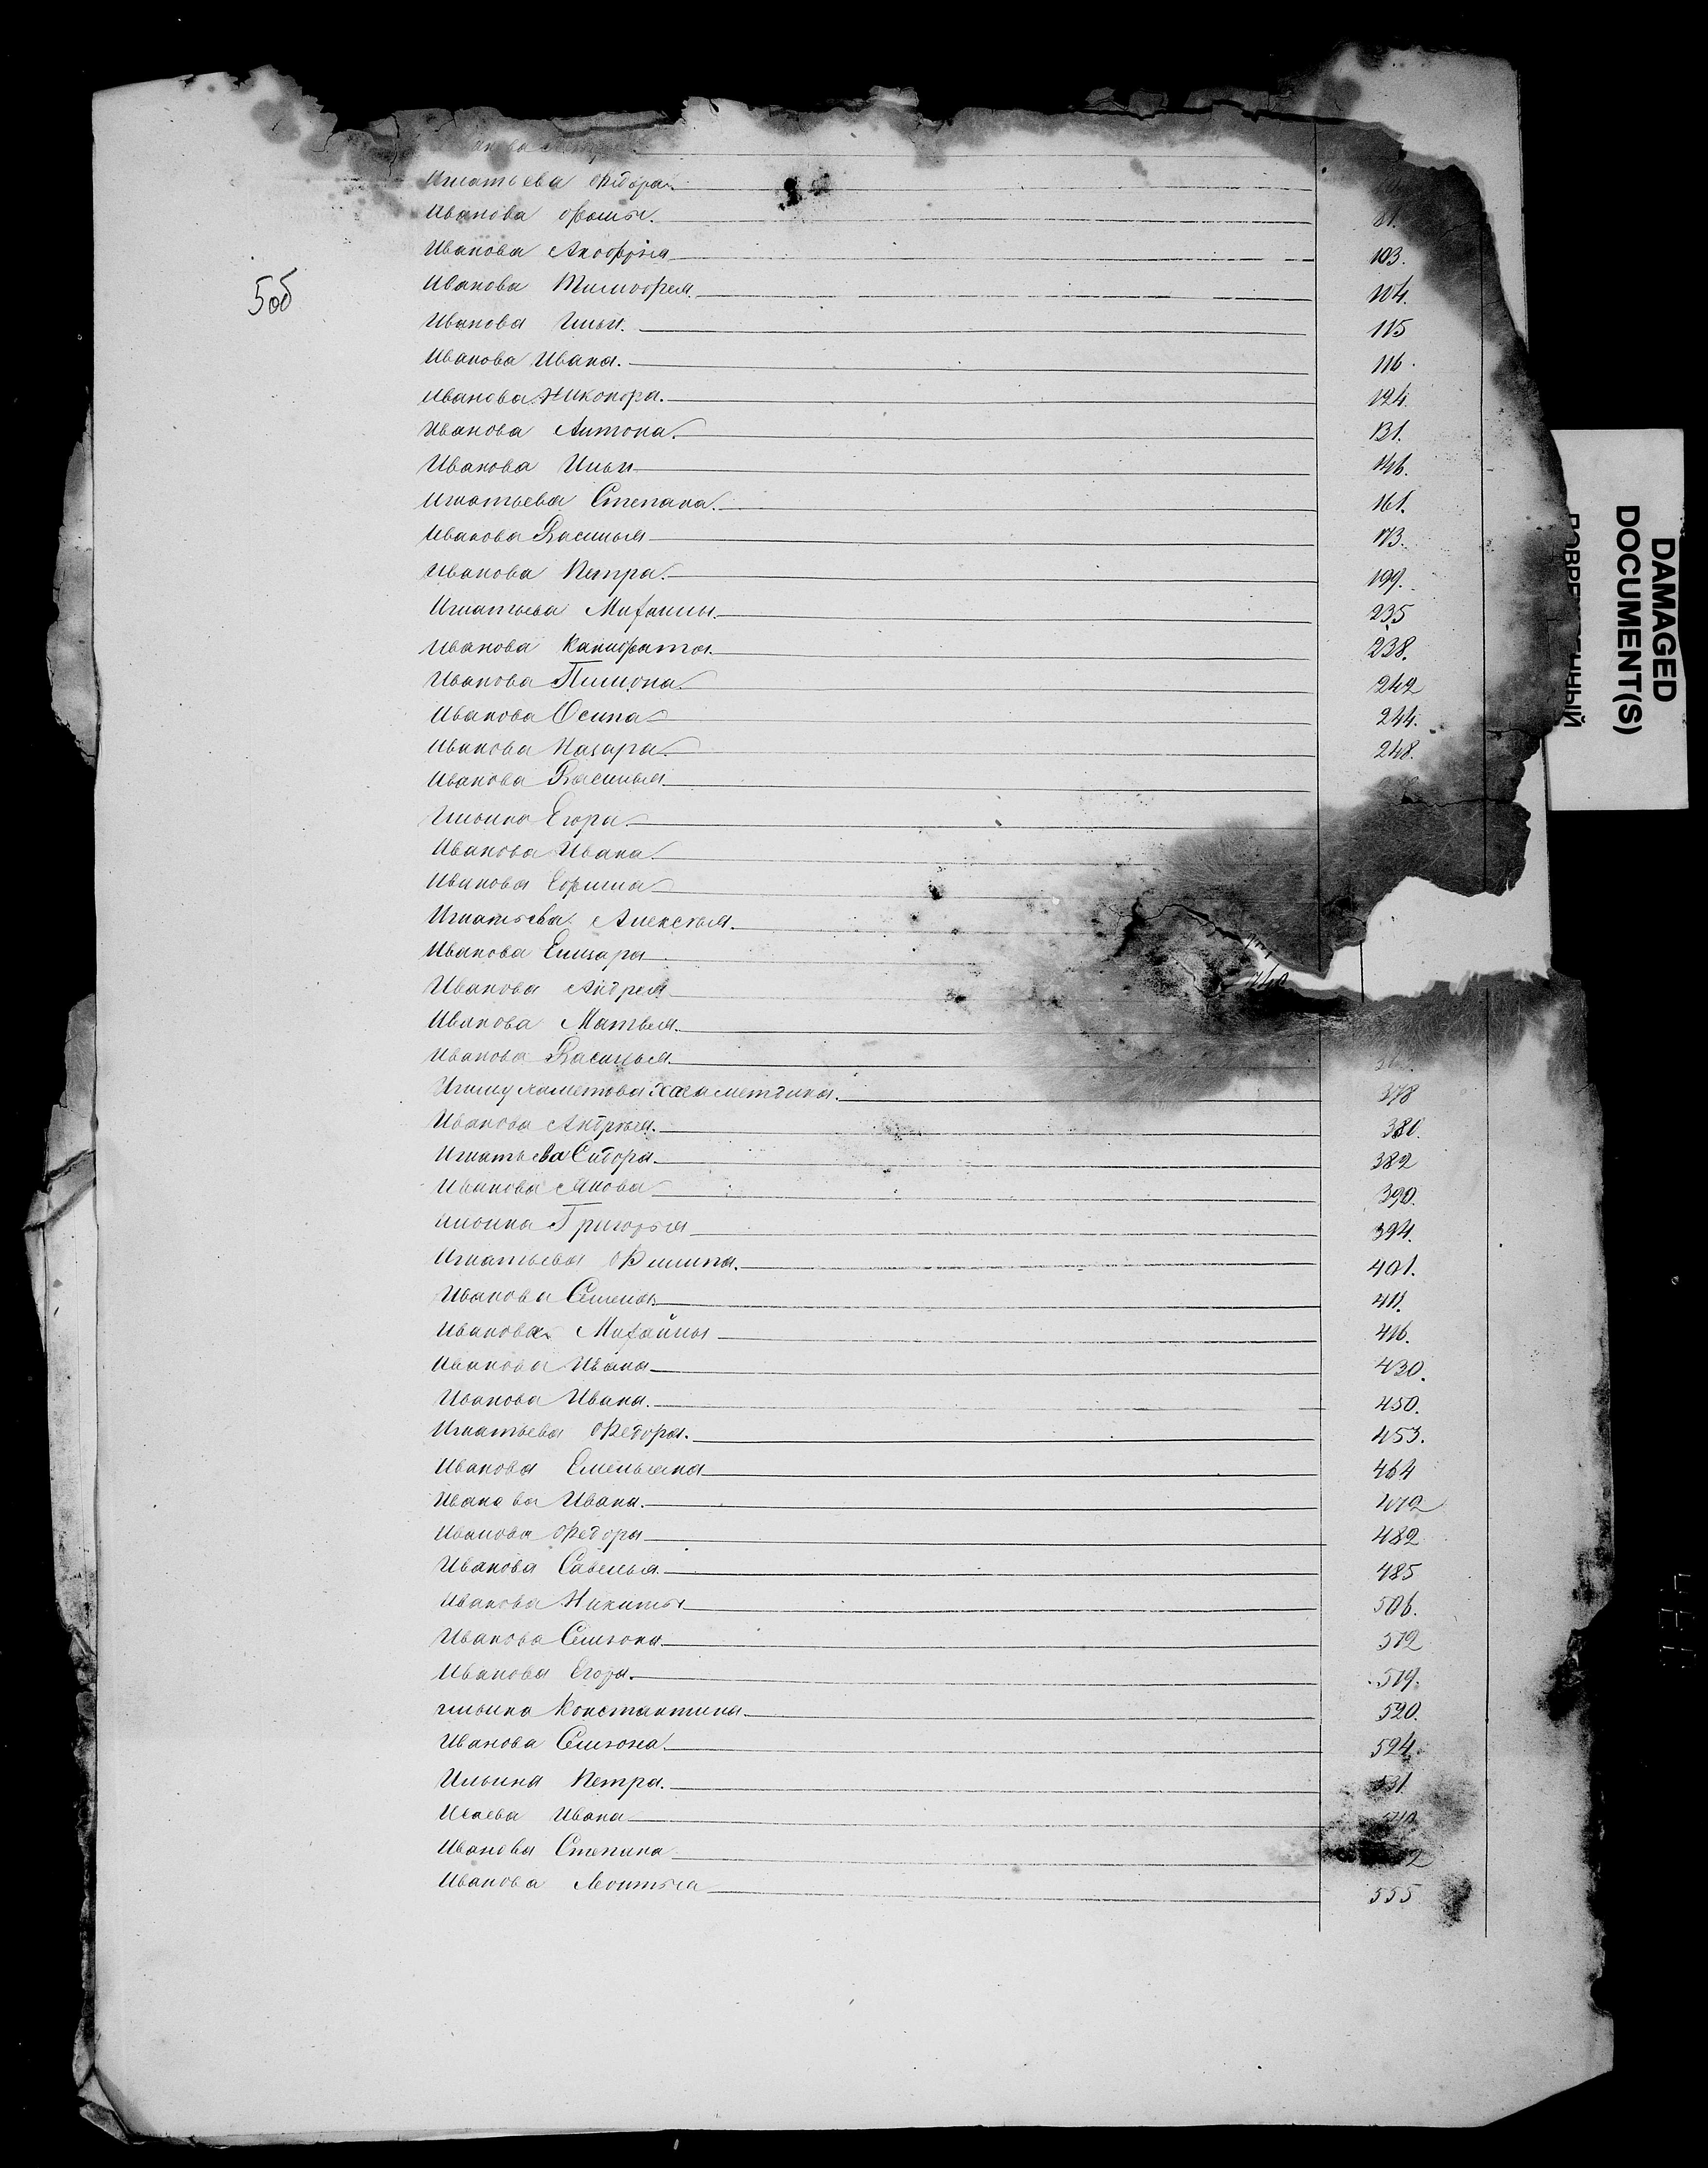 Игнатьева Федора
81.
Иванова Фомы.
103.
Иванова Анофрья
104.
Иванова Тимофея.
5об
115
Иванова Ильи.
116.
Иванова Ивана.
124.
Иванова Никонора.
131.
Иванова Антона.
146.
Иванова Ильи
161.
Игнатьева Степана.
173.
Иванова Василья
199.
Иванова Петра.
235
Игнатьева Михаилы.
238.
Иванова Калистрата
242
Иванова Пимона.
244.
Иванова Осипа
248.
Иванова Назара
Иванова Василья
Ильина Егора.
Иванова Ивана.
Иванова Ефима
Игнатьева Алексея.
Иванова Елизара
Иванова Андрея
Иванова Матвея.
Иванова Василья
378
380.
Иванова Андрея.
382
Игнатьева Сидора
390.
Иванова Якова
394.
Ильина Григорья
401.
Игнатьева Филипа.
411.
Иванова Семена
416.
Иванова Михайлы
430.
Иванова Ивана
450.
Иванова Ивана.
453.
Игнатьева Федора.
464
Иванова Емельяна
472
Иванова Ивана.
482
Иванова Федора
485
Иванова Савелья.
506.
Иванова Никиты
512
Иванова Семиона
519.
Иванова Егора.
520.
Ильина Константина.
524.
Иванова Семиона
531
Ильина Петра.
Исаева Ивана
Иванова Степана
555
Иванова Леонтья
DAMAGED
DOCUMENT(S)